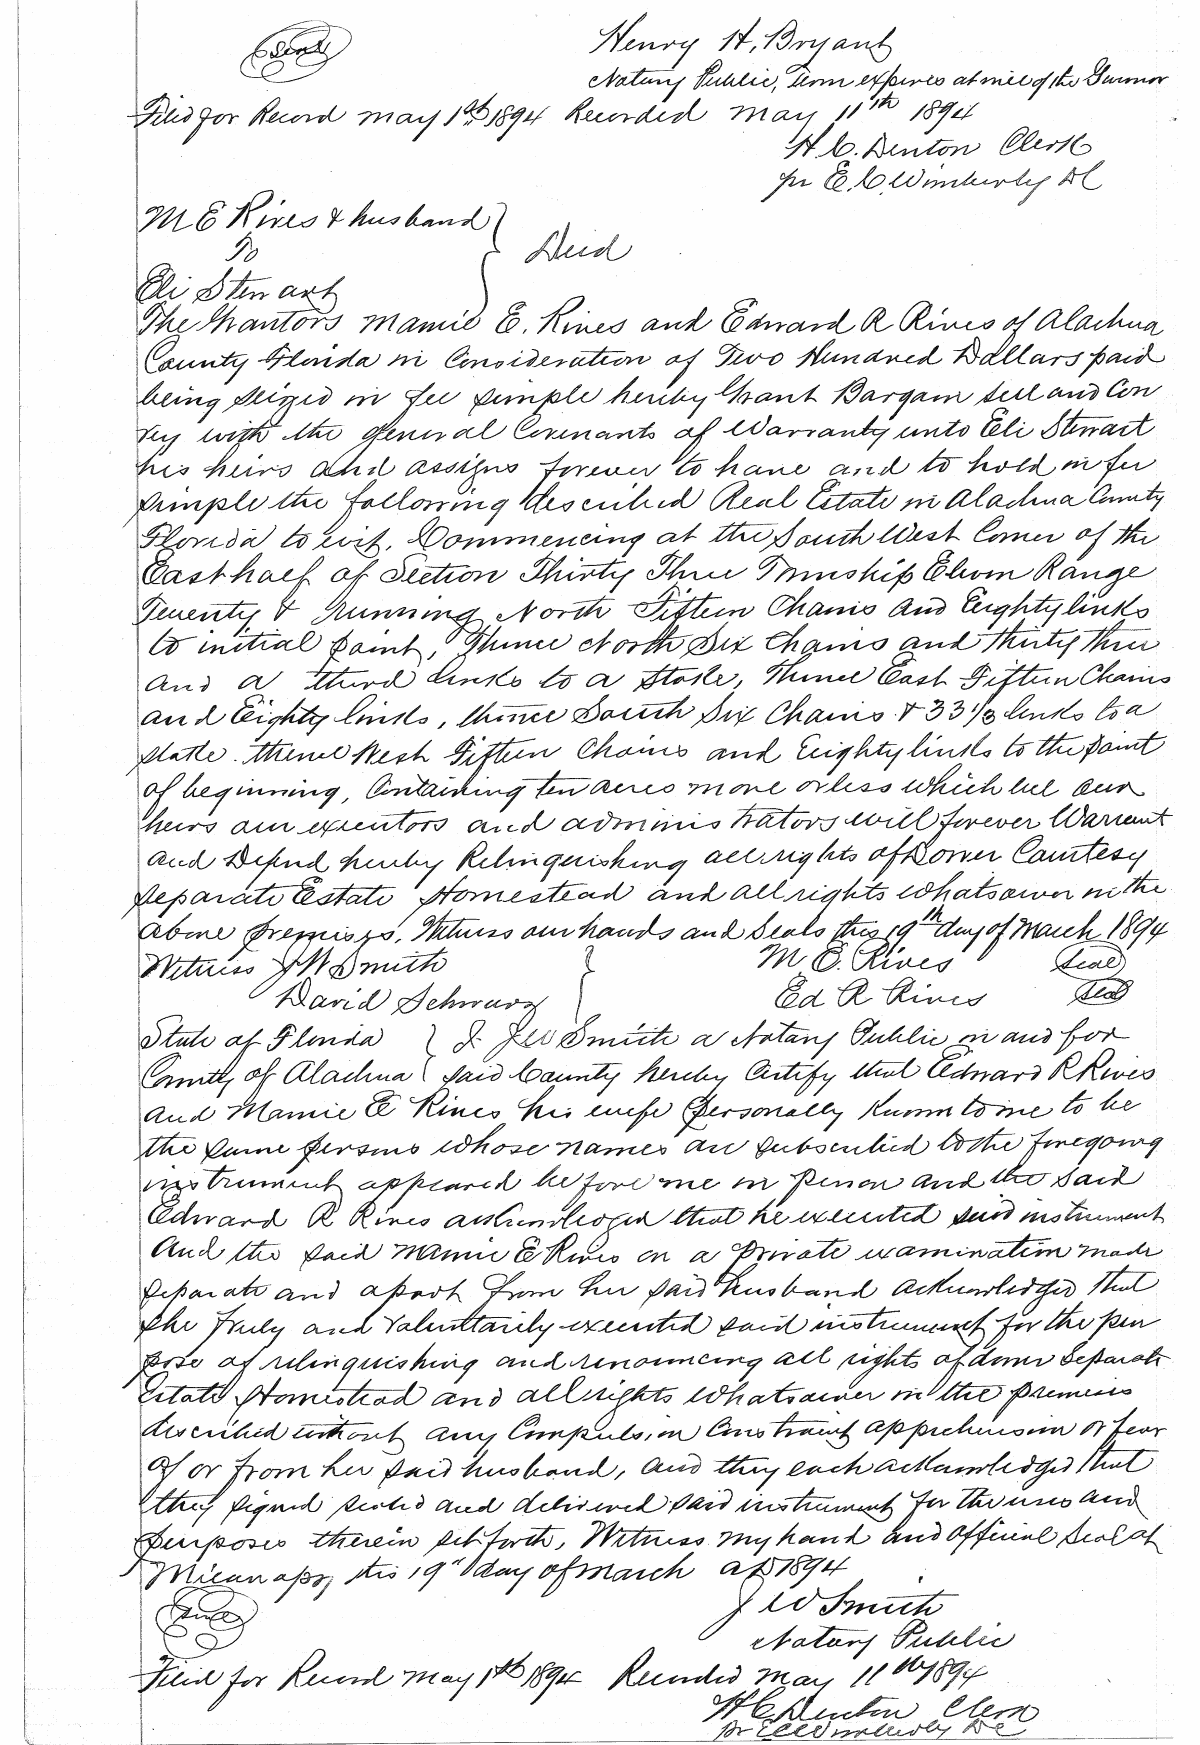 (Seal)
Henry H. Bryant
Notary Public, Term expires at will of the Governor
Filed for Record May 1st 1894 Recorded May 11th 1894
H. C. Denton Clerk
pr E. C. Wimberly DC
M E Rives & husband
To
Deed
Eli Stewart
The Grantors Mamie E. Rives and Edward R Rives of Alachua
County Florida in Consideration of Two Hundred Dollars paid
being seized in fee simple hereby Grant Bargain sell and Con
vey with the general Covenants of Warranty unto Eli Stewart
his heirs and assigns forever to have and to hold in fee
simple the following described Real Estate in Alachua County
Florida to wit. Commencing at the South West Corner of the
East half of Section Thirty Three Township Eleven Range
Twenty & running North Fifteen Chains and Eighty links
to initial point, Thence North Six Chains and thirty three
and a third links to a Stake, Thence East Fifteen Chains
and Eighty links, thence South Six Chains & 33 1/3 links to a
stake. thence West Fifteen Chains and Eighty links to the point
of beginning, Containing ten acres more or less which we our
heirs our executors and administrators will forever Warrant
and Defend hereby Relinquishing all rights of Dower Courtesy
Separate Estate Homestead and all rights whatsoever in the
above premises. Witness our hands and Seals this 19th day of March 1894
Witness J W Smith M E. Rives (Seal)
David Schwarz Ed R Rives (Seal)
State of Florida I. J W Smith a Notary Public in and for
County of Alachua said County hereby Certify that Edward R Rives
and Mamie E Rives his wife personally known to me to be
the same persons whose names are subscribed to the foregoing
instrument appeared before me in person and the said
Edward R Rives acknowledged that he executed said instrument
And the said Mamie E Rives on a private examination made
separate and apart from her said husband acknowledged that
she freely and Voluntarily executed said instrument for the pur
pose of relinquishing and renouncing all rights of dower Separate
Estate, Homestead and all rights whatsoever in the premises
described without any Compulsion Constraint apprehension or fear
of or from her said husband, and they each acknowledged that
they signed sealed and delivered said instrument for the uses and
purposes therein set forth, Witness my hand and official Seal at
Micanopy this 19" day of March AD 1894
(Seal)
J W Smith
Notary Public
Filed for Record May 1th 1894 Recorded May 11th 1894
H C Denton Clerk
pr E C Wimberly DC